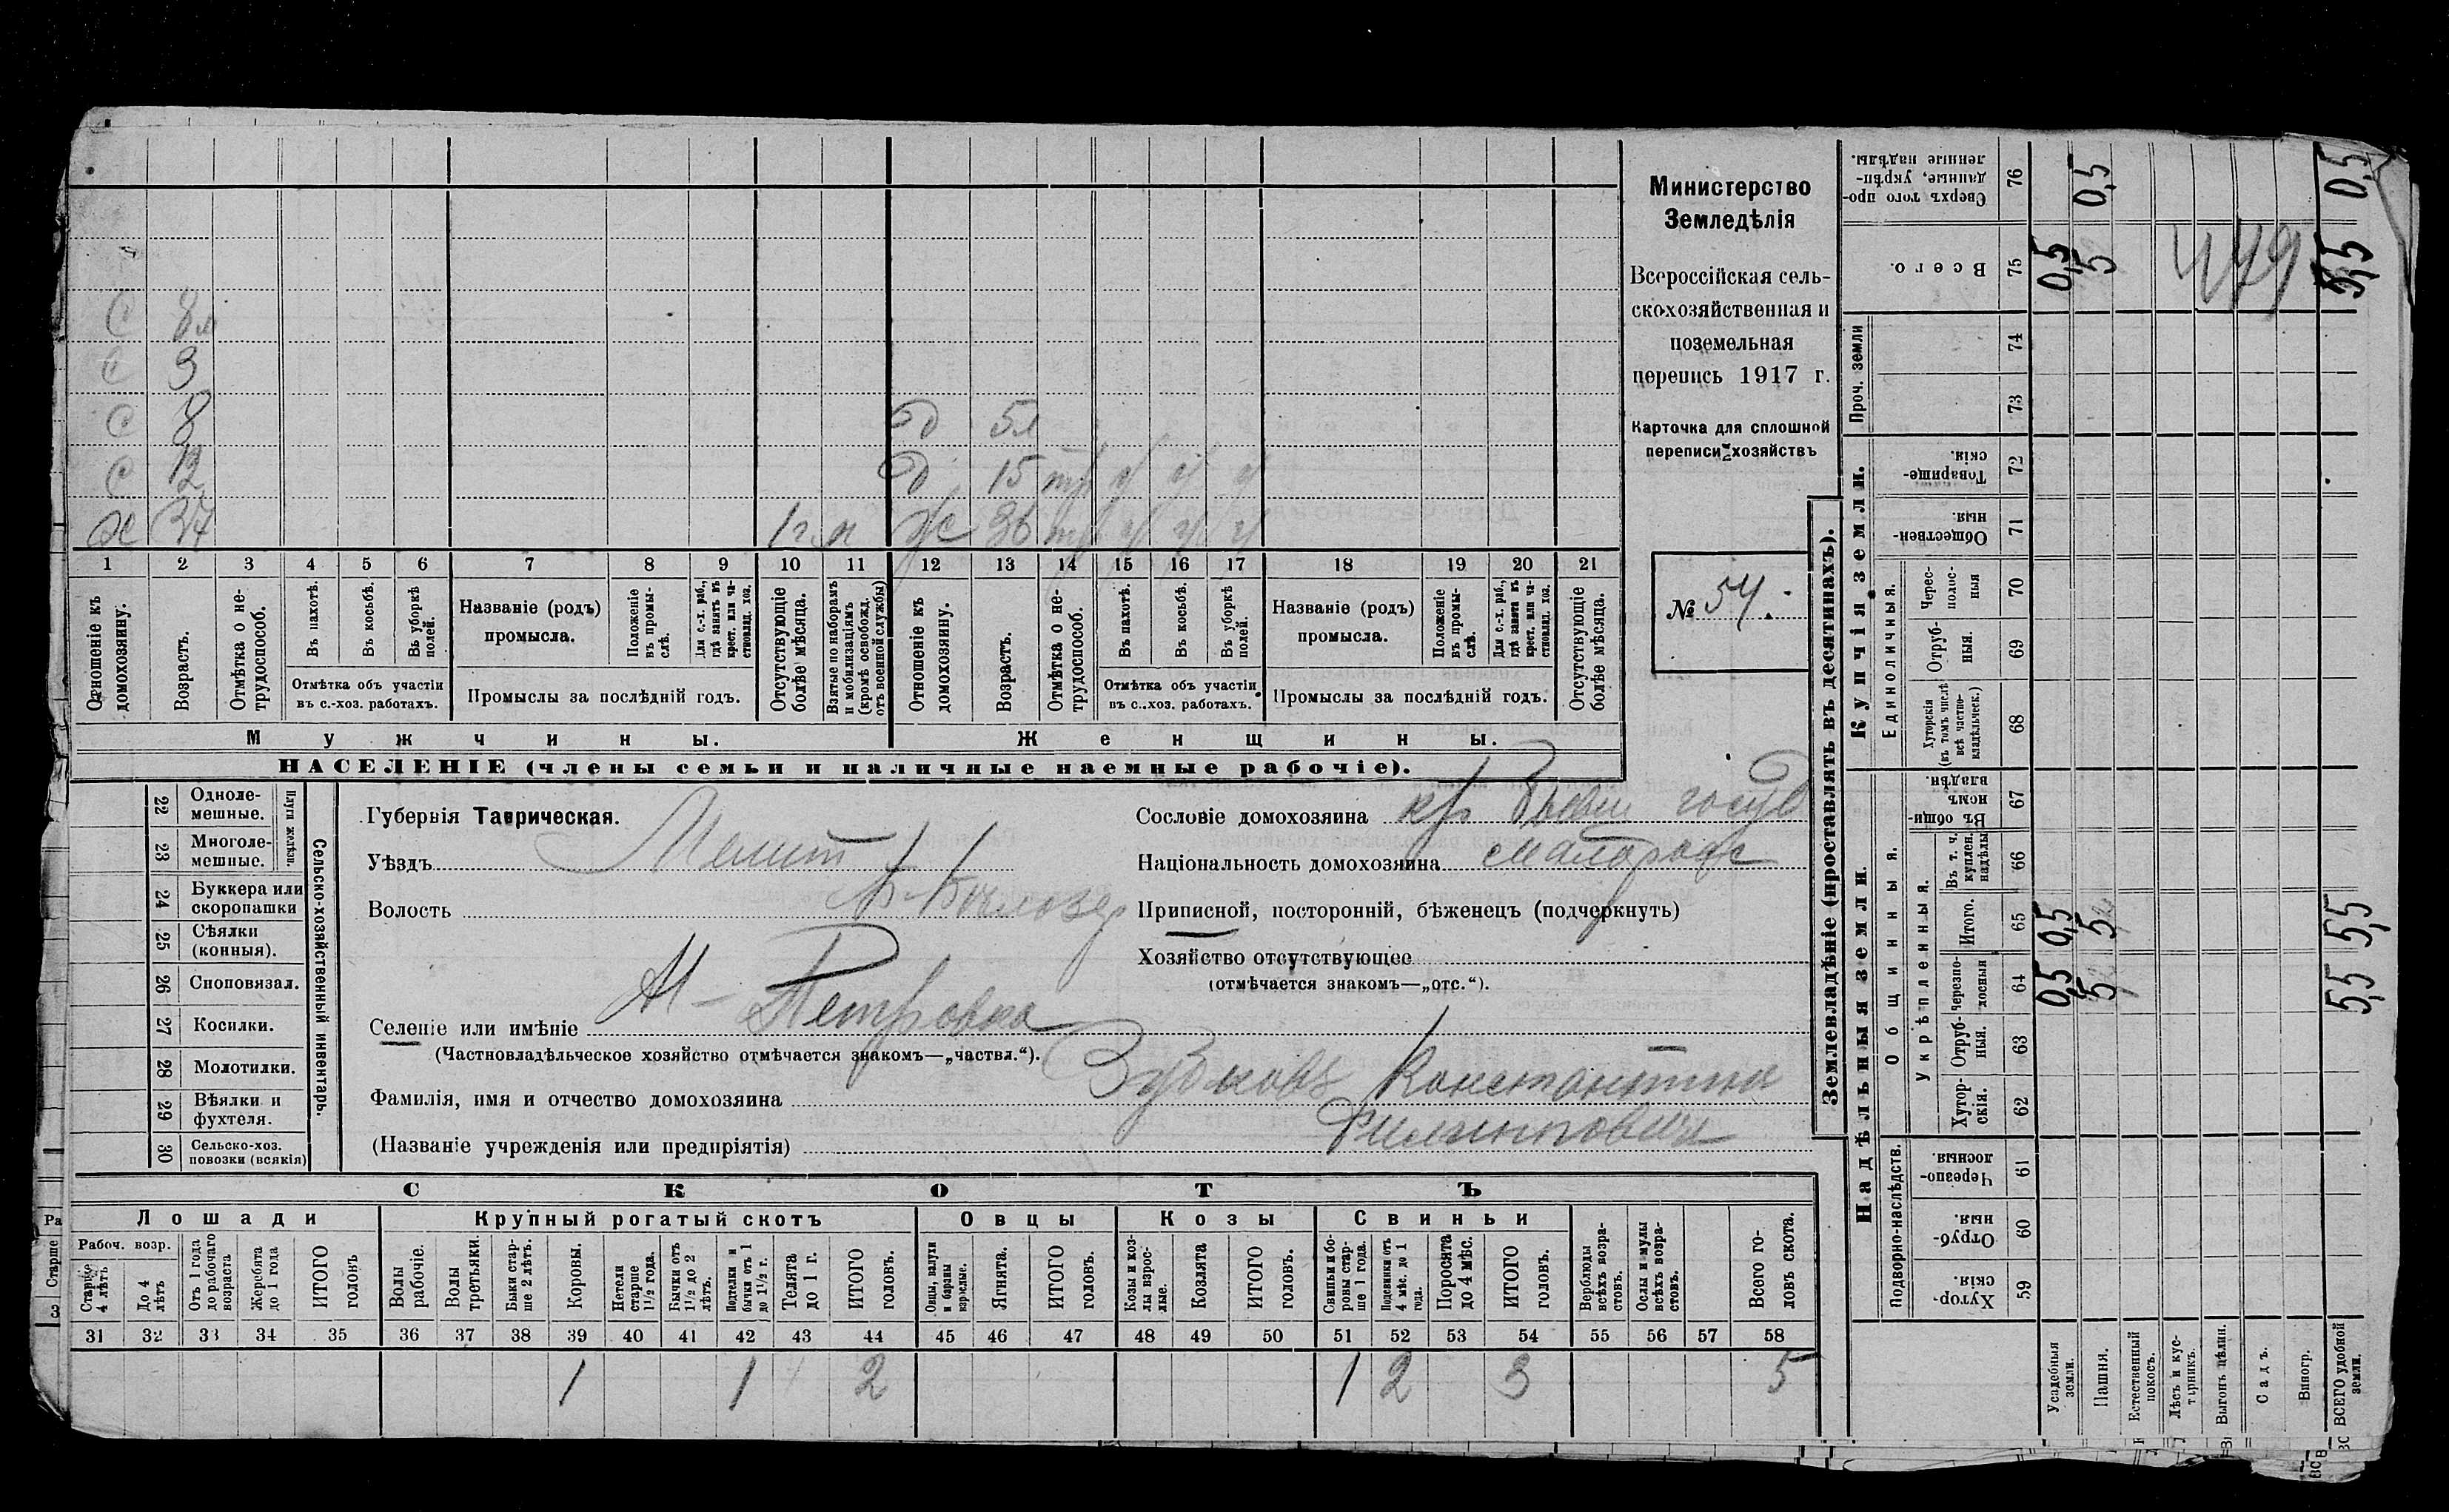 С 8м
С 3
С 8 Д 5л
С 12 Д 15 тр ч ч ч
Х 37 1 г. м Ж 36 тр ч ч ч
1 2 3 4 5 6 7 8 9 10 11 12 13 14 15 16 17 18 19 20 21
Отношеніе къ домохозяину.
Возрастъ.
Отмѣтка о нетрудоспособ.
Въ пахотѣ.
Въ косьбѣ.
Въ уборкѣ полей.
Отмѣтка объ участіи
въ с.-хоз. работахъ.
Названіе (родъ)
промысла.
Положеніе въ промыслѣ.
Для с.-х. раб., гдѣ занятъ въ крест. или частновлад. хоз.
Промыслы за послѣдній годъ.
Отсутствующіе болѣе мѣсяца.
Взятые по наборамъ и мобилизаціямъ (кромѣ освобожд. отъ военной службы)
Отношеніе къ домохозяину.
Возрастъ.
Отмѣтка о нетрудоспособ.
Въ пахотѣ.
Въ косьбѣ.
Въ уборкѣ полей.
Отмѣтка объ участіи
въ с.-хоз. работахъ.
Названіе (родъ)
промысла.
Положеніе въ промыслѣ.
Для с.-х. раб., гдѣ занята въ крест. или частновлад. хоз.
Промыслы за послѣдній годъ.
Отсутствующіе болѣе мѣсяца.
Мужчины. Женщины.
НАСЕЛЕНІЕ (члены семьи и наличные наемные рабочіе).
Министерство
Земледѣлія
Всероссійская сель-
скохозяйственная и
поземельная
перепись 1917 г.
Карточка для сплошной
переписи хозяйствъ
№ 54.
22 Одноле-
мешные.
23 Многоле-
мешные.
Плуги желѣзн.
24 Буккера или
скоропашки
25 Сѣялки
(конныя).
26 Сноповязал.
27 Косилки.
28 Молотилки.
29 Вѣялки и
фухтеля.
30 Сельско-хоз.
повозки (всякія)
Сельско-хозяйственный инвентарь.
Губернія Таврическая.
Уѣздъ Мелит
Волость Б-Бѣлозер
Селеніе или имѣніе М-Петровка
(Частновладѣльческое хозяйство отмѣчается знакомъ—„частвл.“).
Фамилія, имя и отчество домохозяина Зубковъ Константин
(Названіе учрежденія или предпріятія) Филиппович
Сословіе домохозяина кр бывш госуд
Національность домохозяина малорос
Приписной, посторонній, бѣженецъ (подчеркнуть)
Хозяйство отсутствующее
(отмѣчается знакомъ—„отс.“).
СКОТЪ
Лошади Крупный рогатый скотъ Овцы Козы Свиньи
Рабоч. возр.
Старше 4 лѣтъ
До 4 лѣтъ
Отъ 1 года до рабочаго возраста
Жеребята до 1 года
ИТОГО головъ
Волы рабочіе.
Волы третьяки.
Быки старше 2 лѣтъ.
Коровы.
Нетели старше 1½ года.
Бычки отъ 1½ до 2 лѣтъ.
Подтелки и бычки отъ 1 до 1½ г.
Телята до 1 г.
ИТОГО головъ.
Овцы, валухи и бараны взрослые.
Ягнята.
ИТОГО головъ.
Козы и козлы взрослые.
Козлята
ИТОГО головъ.
Свиньи и боровы старше 1 года.
Подсвинки отъ 4 мѣс. до 1 года.
Поросята до 4 мѣс.
ИТОГО головъ.
Верблюды всѣхъ возрастовъ.
Ослы и мулы всѣхъ возрастовъ.
Всего головъ скота.
31 32 33 34 35 36 37 38 39 40 41 42 43 44 45 46 47 48 49 50 51 52 53 54 55 56 57 58
1 1 2 1 2 3 5
Ра
Старше
3
Землевладѣніе (проставлять въ десятинахъ).
Надѣльныя земли. Купчія земли. Проч. земли
Подворно-наслѣдств.
Общинныя.
Укрѣпленныя.
Единоличныя.
59 Хуторскія
60 Отрубныя.
61 Черезполосныя.
62 Хуторскія.
63 Отрубныя.
64 Черезполосныя
65 Итого.
66 Въ т. ч. куплен. надѣлы
67 Въ общинномъ владѣн.
68 Хуторскія (въ томъ числѣ всѣ частновладѣльческ.)
69 Отрубныя.
70 Череспoлосныя
71 Общественныя.
72 Товарищескія.
73
74
75 Всего.
76 Сверхъ того проданные, укрѣпленные надѣлы.
Усадебныя земли. 0,5 0,5 0,5
Пашня. 5 5 5 0,5
Естественный покосъ.
Лѣсъ и кустарникъ.
Выгонъ цѣлин.
Садъ.
Виногр.
ВСЕГО удобной земли. 5,5 5,5 5,5 0,5
449